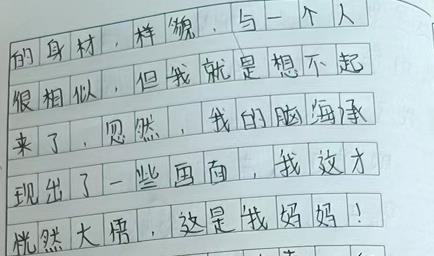 的身材，样貌，与一个人
很相似，但我就是想不起
来了，忽然，我的脑海承
现出了一些画面，我这才
恍然大悟，这是我妈妈！